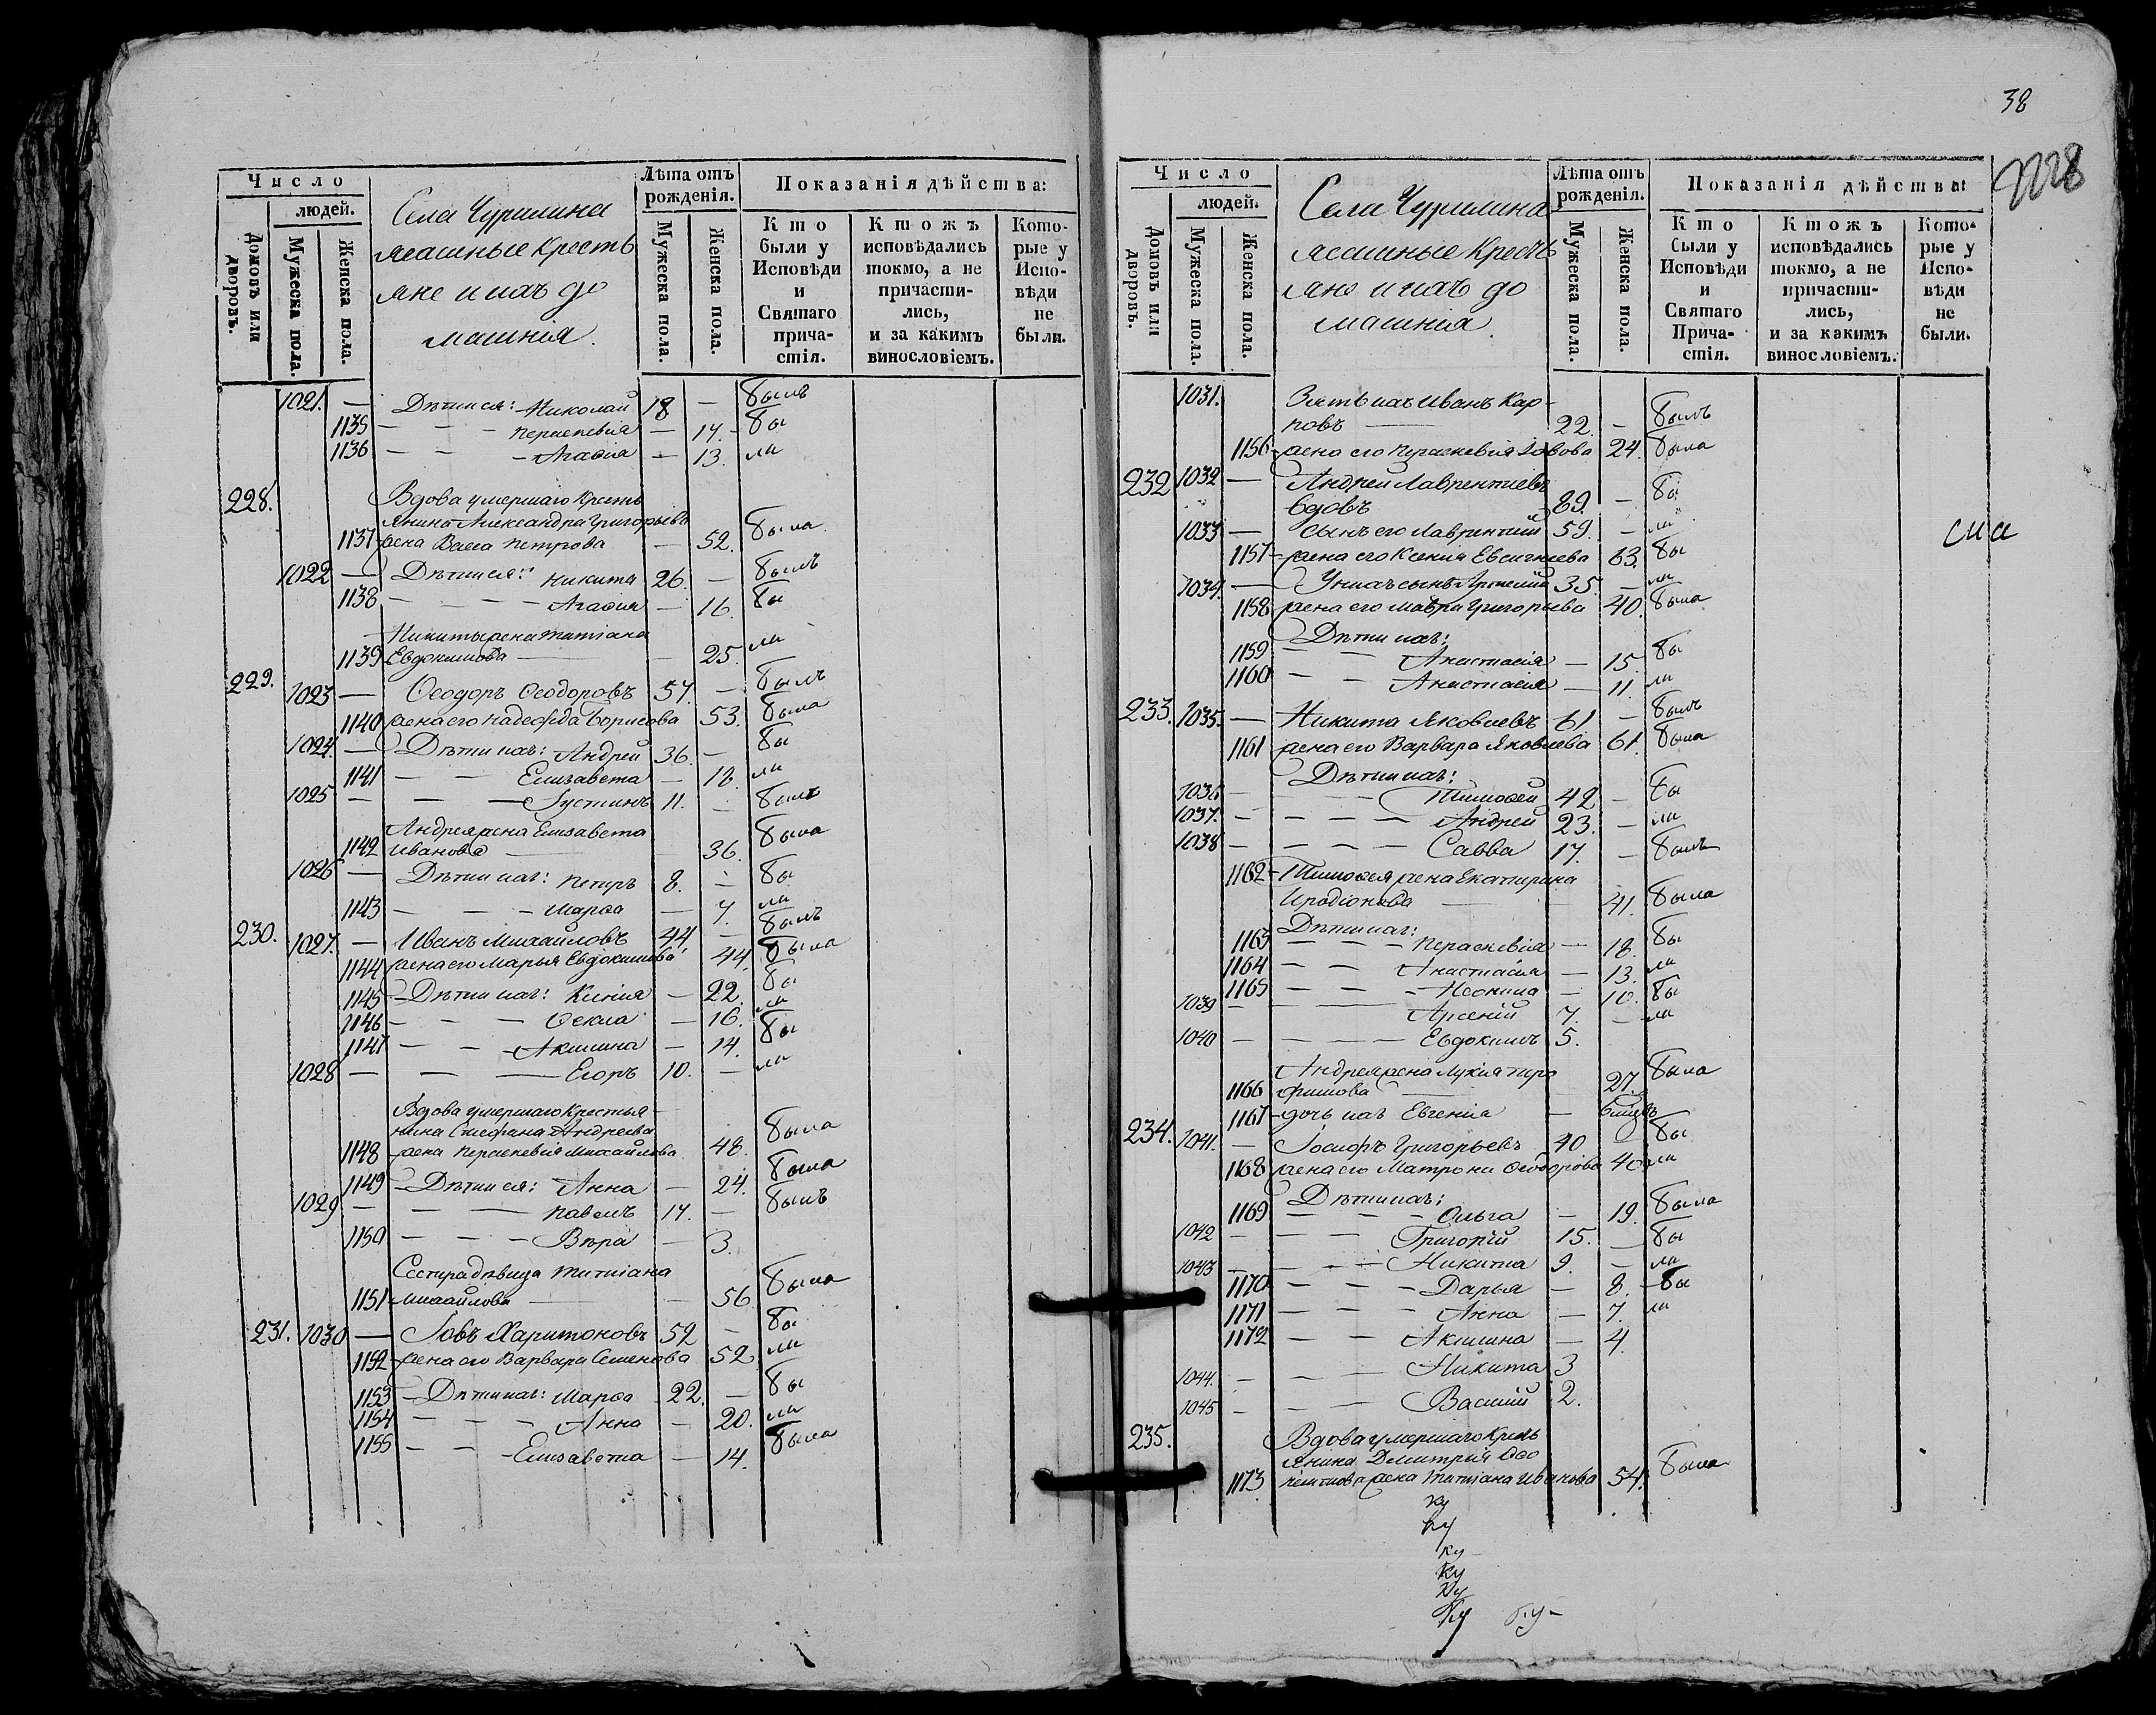 Число
людей.
Домовъ или дворовъ.
Мужеска пола.
Женска пола.
Села Чурилина
ясашные кресть
яне и ихъ до
машнія.
Лѣта отъ рожденія.
Мужеска пола.
Женска пола.
Показанія дѣйства:
Кто были у Исповѣди и Святаго причастія.
Ктожъ исповѣдались токмо, а не причастились, и за какимъ винословіемъ.
Которые у Исповѣди не были.
1021. — Дѣти ея: Николай 18 — былъ
1135 — — — Параскевія — 17. бы
1136 — — — Агафія — 13. ли
228. Вдова умершаго кресть
янина Александра Григорьева
1137 жена Васса Петрова — 52. была
1022 — Дѣти ея: Никита 26. — былъ
1138 — — — Агафія — 16. бы
Никиты жена Татіана
1139 Евдокимова — 25. ли
229. 1023 — Ѳеодоръ Ѳеодоровъ 57. — былъ
1140 жена его Надежда Борисова 53. была
1024. — Дѣти ихъ: Андрей 36. — бы
1141 — — Елизавета — 18. ли
1025 — — — Іустинъ 11. — былъ
Андрея жена Елизавета
1142 Иванова — 36. была
1026 — Дѣти ихъ: Петръ 8. — бы
1143 — — — Марѳа — 7. ли
230. 1027. — Иванъ Михайловъ 44. — былъ
1144 жена его Марья Евдокимова 44. была
1145 — Дѣти ихъ: Ксенія — 22. бы
1146 — — — Ѳекла — 16. ли
1147 — — — Акилина — 14. бы
1028 — — — Егоръ 10. — ли
Вдова умершаго крестья-
нина Стефана Андреева
1148 жена Параскевія Михайлова 48. была
1149 — Дѣти ея: Анна — 24. была
1029 — — — Павелъ 17. — былъ
1150 — — — Вѣра — 3.
Сестра дѣвица Татіана
1151 Михайлова — 56. была
231. 1030 — Іовъ Харитоновъ 52 — бы
1152 жена его Варвара Семенова 52 ли
1153 — Дѣти ихъ: Марѳа 22. — бы
1154 — — — Анна — 20. ли
1155 — — — Елизавета — 14. была
38
Число
людей.
Домовъ или дворовъ.
Мужеска пола.
Женска пола.
Села Чурилина
ясашные кресть
яне и ихъ до
машнія
Лѣта отъ рожденія.
Мужеска пола.
Женска пола.
Показанія дѣйства:
Кто были у Исповѣди и Святаго Причастія.
Ктожъ исповѣдались токмо, а не причастились, и за какимъ винословіемъ.
Которые у Исповѣди не были.
1031. Зять ихъ Иванъ Кар-
повъ — 22. — былъ
1156 жена его Параскевія Іовова 24. была
232 1032 — Андрей Лаврентіевъ
вдовъ 89. — бы
1033 — Сынъ его Лаврентій 59. — ли
1157 жена его Ксенія Евсигнѣева 63. бы
1034. — У нихъ сынъ 35. — ли
1158 жена его Мавра Григорьева 40. была
Дѣти ихъ:
1159 — — Анастасія — 15. бы
1160 — — Анастасія — 11. ли
233. 1035. — Никита Яковлевъ 61 — былъ
1161 жена его Варвара Яковлева 61. была
Дѣти ихъ:
1036 — — — Тимоѳей 42 — бы
1037. — — — Андрей 23. — ли
1038 — — — Савва 17. — былъ
1162 — Тимоѳея жена Екатерина
Иродіонова — 41. была
Дѣти ихъ:
1163 — — — Параскевія — 18. бы
1164 — — Анастасія — 13. ли
1165 — — — Неонила — 10. бы
1039 — — Арсеній 7. — ли
1040 — — — — Евдокимъ 5.
Андрея жена Лукія Тро
1166 фимова — 27. была
1167 — дочь ихъ Евгенія —
234. 1041. — Іосифъ Григорьевъ 40 — бы
1168 жена его Матрона Ѳеодорова 40 ли
Дѣти ихъ:
1169 — — — Ольга — 19. была
1042 — — — Григорій 15. — бы
1043 — — — Никита 9. — ли
1170 — — — Дарья — 8. бы
1171 — — — Анна — 7. ли
1172 — — Акилина — 4.
1044. — — — Никита 3
1045 — — — Василій 2.
235. Вдова умершаго кресть
янина Димитрія Ѳео
1173 жена Татіана Иванова 54. была
ку
ку
ку
ку
ку